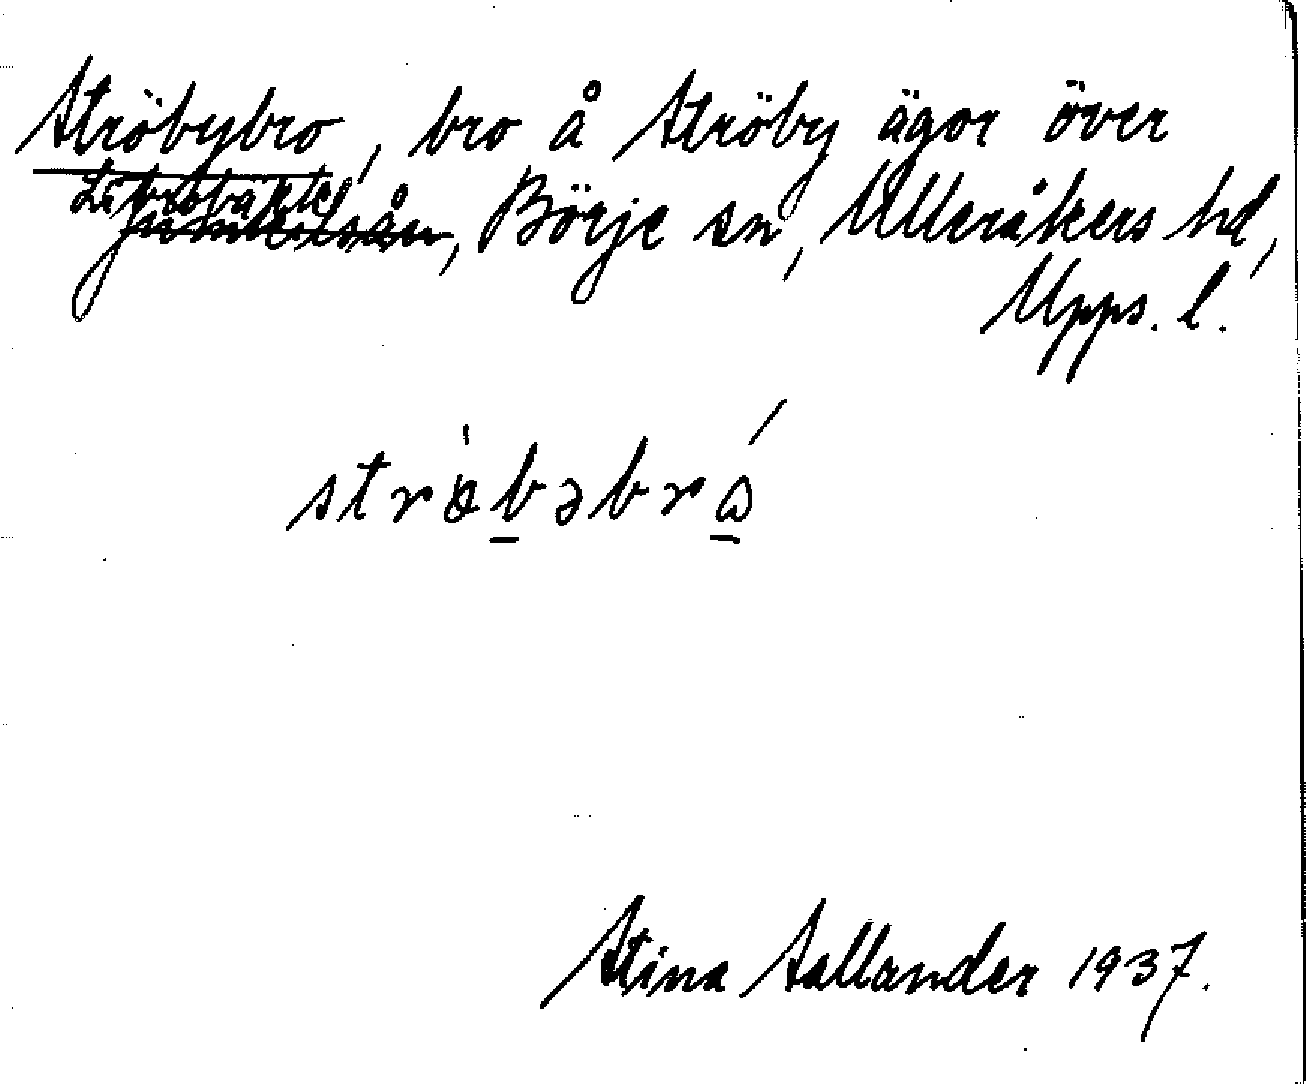 Ströbybro, bro å Ströby ägor över
Börje sn, Ulleråkers hd,
Upps. l.
ströbəbrω
Stina Sallander 1937.